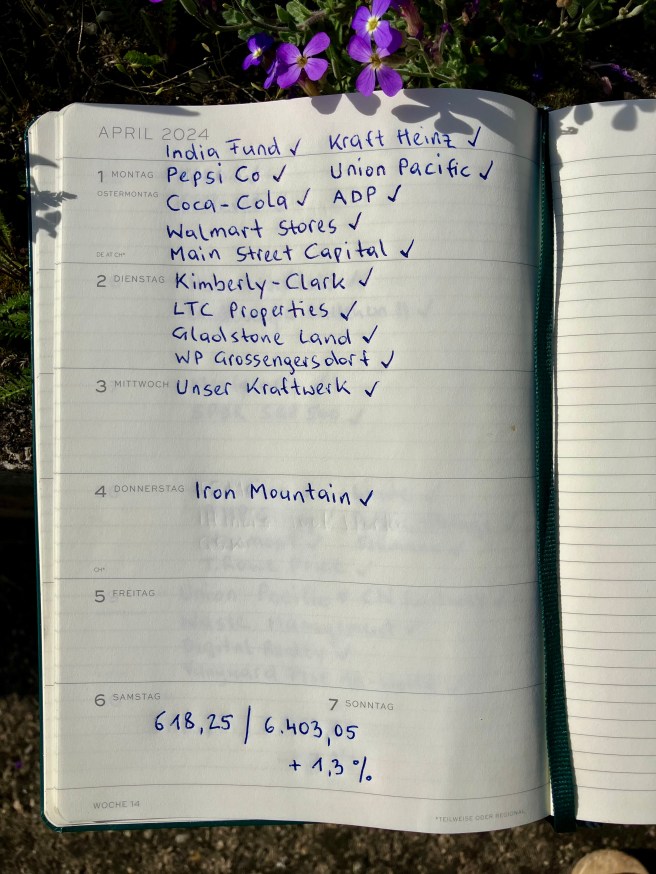 APRIL 2024
India Fund ✓ Kraft Heinz ✓
1 MONTAG Pepsi Co ✓ Union Pacific ✓
OSTERMONTAG Coca-Cola ✓ ADP ✓
Walmart Stores ✓
DE AT CH* Main Street Capital ✓
2 DIENSTAG Kimberly-Clark ✓
LTC Properties ✓
Gladstone Land ✓
WP Grossengersdorf ✓
3 MITTWOCH Unser Kraftwerk ✓
4 DONNERSTAG Iron Mountain ✓
CH*
5 FREITAG
6 SAMSTAG 7 SONNTAG
618,25 | 6.403,05
+ 1,3 %
WOCHE 14 *TEILWEISE ODER REGIONAL